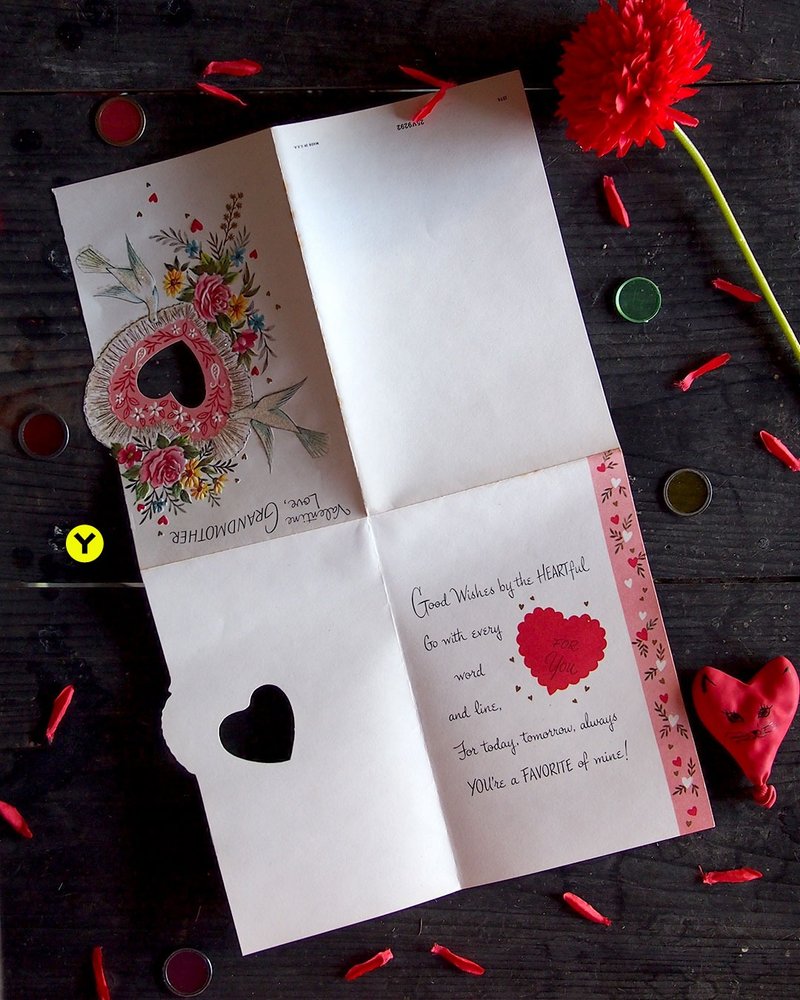 MADE IN U.S.A.
25V9292
Love,
Valentine GRANDMOTHER
Y
Good Wishes by the HEARTful
Go with every
word
and line,
For today, tomorrow, always
YOU're a FAVORITE of mine!
FOR
You